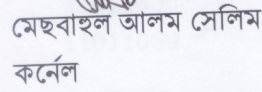 মেছবাহুল আলম সেলিম
কর্নেল